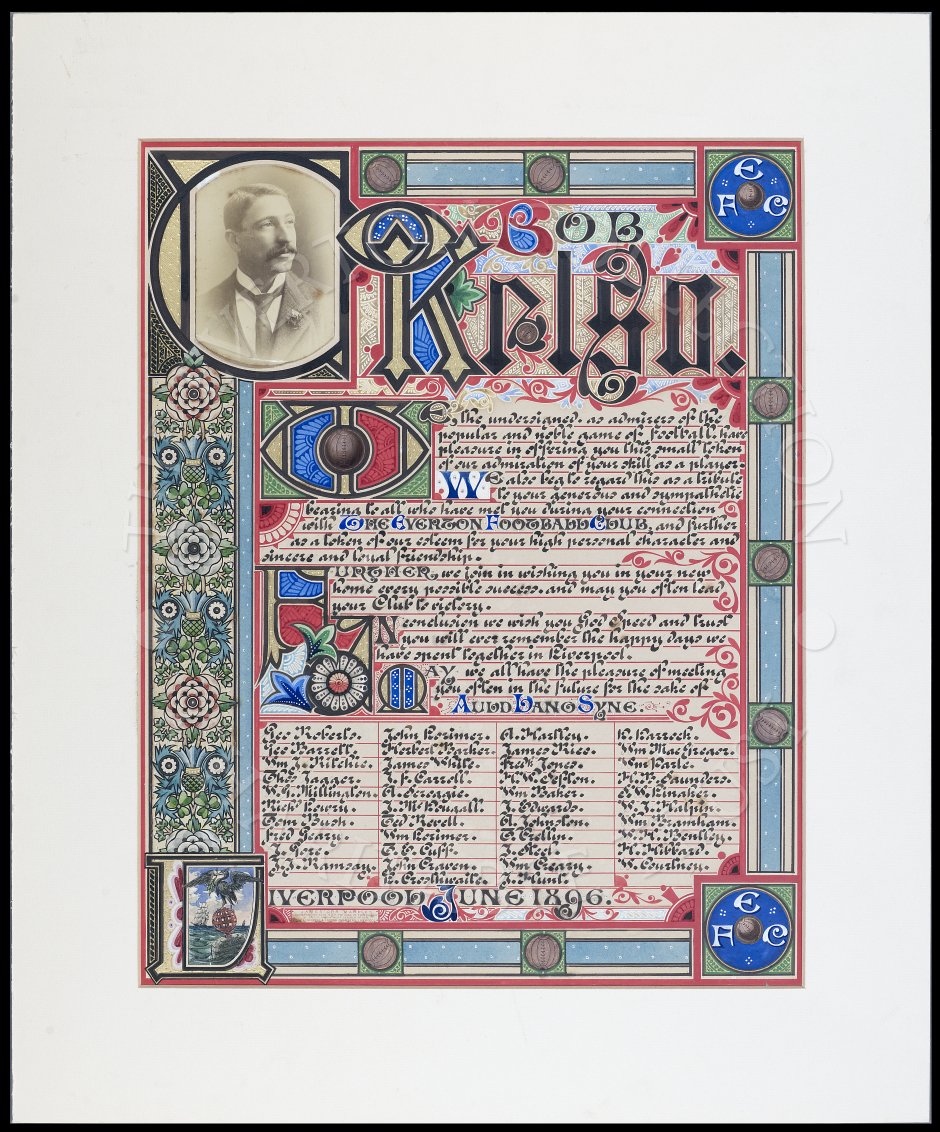 BOB
Kelso.
We, the undersigned, as admirers of the
popular and noble game of football, have
pleasure in offering you this small token
of our admiration of your skill as a player.
We also beg to regard this as a tribute
to your generous and sympathetic
bearing to all who have met you during your connection
with THE EVERTON FOOTBALL CLUB, and further
as a token of our esteem for your high personal character and
sincere and loyal friendship.
FURTHER, we join in wishing you in your new
home every possible success and may you often lead
your Club to victory.
IN conclusion we wish you God speed and trust
you will ever remember the happy days we
have spent together in Liverpool.
MAY we all have the pleasure of meeting
you often in the future for the sake of
AULD LANG SYNE.
Geo Roberts. John Lorimer. A. Hartley. R. Barrock.
Geo Barrett. Herbert Parker. James Rice. Wm MacGregor.
Wm Ritchie. James Wills. Fredk Jones. Wm Earle.
Thos Jagger. J. F. Carroll. H. W. Clifton. H. B. Saunders.
W. G. Millington. A. Scroggie. Wm Baker. C. W. Kinaker.
Nick Lowry. J. McDougall. J. Edwards. W. J. Martin.
Tom Bush. Ted Merell. A. Johnston. Wm Bramham.
Fred Geary. Wm Lorimer. T. Crellin. W. H. Bentley.
J. Gore. T. E. Cuff. J. Skel. H. Hibbard.
H. J. Ramsay. John Craven. Wm Cleary. W. Courtney.
R. Crosthwaite. J. Hunt.
LIVERPOOL, JUNE 1896.
E
F C
E
F C